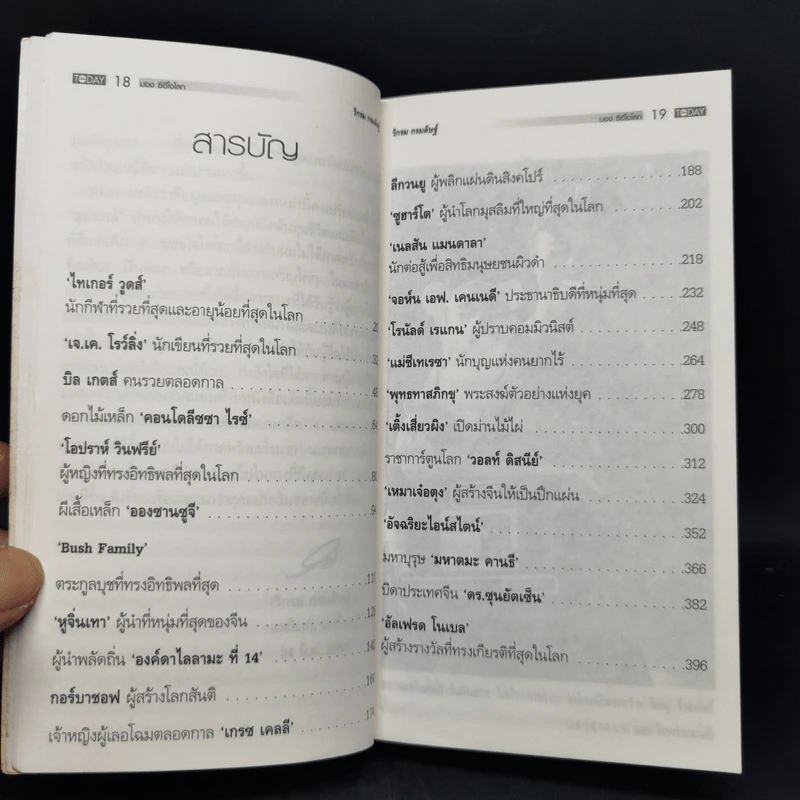 TODAY 18 มอง ซีอีโอโลก
วิกรม กรมดิษฐ์
สารบัญ
'ไทเกอร์ วูดส์'
นักกีฬาที่รวยที่สุดและอายุน้อยที่สุดในโลก
'เจ.เค. โรว์ลิ่ง' นักเขียนที่รวยที่สุดในโลก
บิล เกตส์ คนรวยตลอดกาล
ดอกไม้เหล็ก 'คอนโดลีซซา ไรซ์'
'โอปราห์ วินฟรีย์'
ผู้หญิงที่ทรงอิทธิพลที่สุดในโลก
ผีเสื้อเหล็ก 'อองซานซูจี'
'Bush Family'
ตระกูลบุชที่ทรงอิทธิพลที่สุด
'หูจิ่นเทา' ผู้นำที่หนุ่มที่สุดของจีน
ผู้นำพลัดถิ่น 'องค์ดาไลลามะ ที่ 14'
กอร์บาชอฟ ผู้สร้างโลกสันติ
เจ้าหญิงผู้เลอโฉมตลอดกาล 'เกรซ เคลลี่'
วิกรม กรมดิษฐ์
มอง ซีอีโอโลก 19 TODAY
ลีกวนยู ผู้พลิกแผ่นดินสิงคโปร์ 188
'ซูฮาร์โต' ผู้นำโลกมุสลิมที่ใหญ่ที่สุดในโลก 202
'เนลสัน แมนดาลา'
นักต่อสู้เพื่อสิทธิมนุษยชนผิวดำ 218
'จอห์น เอฟ. เคนเนดี' ประธานาธิบดีที่หนุ่มที่สุด 232
'โรนัลด์ เรแกน' ผู้ปราบคอมมิวนิสต์ 248
'แม่ชีเทเรซา' นักบุญแห่งคนยากไร้ 264
'พุทธทาสภิกขุ' พระสงฆ์ตัวอย่างแห่งยุค 278
'เติ้งเสี่ยวผิง' เปิดม่านไม้ไผ่ 300
ราชาการ์ตูนโลก 'วอลท์ ดิสนีย์' 312
'เหมาเจ๋อตุง' ผู้สร้างจีนให้เป็นปึกแผ่น 324
'อัจฉริยะไอน์สไตน์' 352
มหาบุรุษ 'มหาตมะ คานธี' 366
บิดาประเทศจีน 'ดร.ซุนยัตเซ็น' 382
'อัลเฟรด โนเบล'
ผู้สร้างรางวัลที่ทรงเกียรติที่สุดในโลก 396